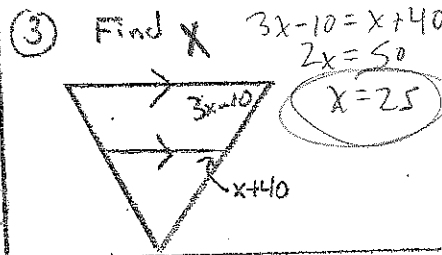 ③ Find X
3x-10 = x+40
2x = 50
x = 25
3x-10
x+40